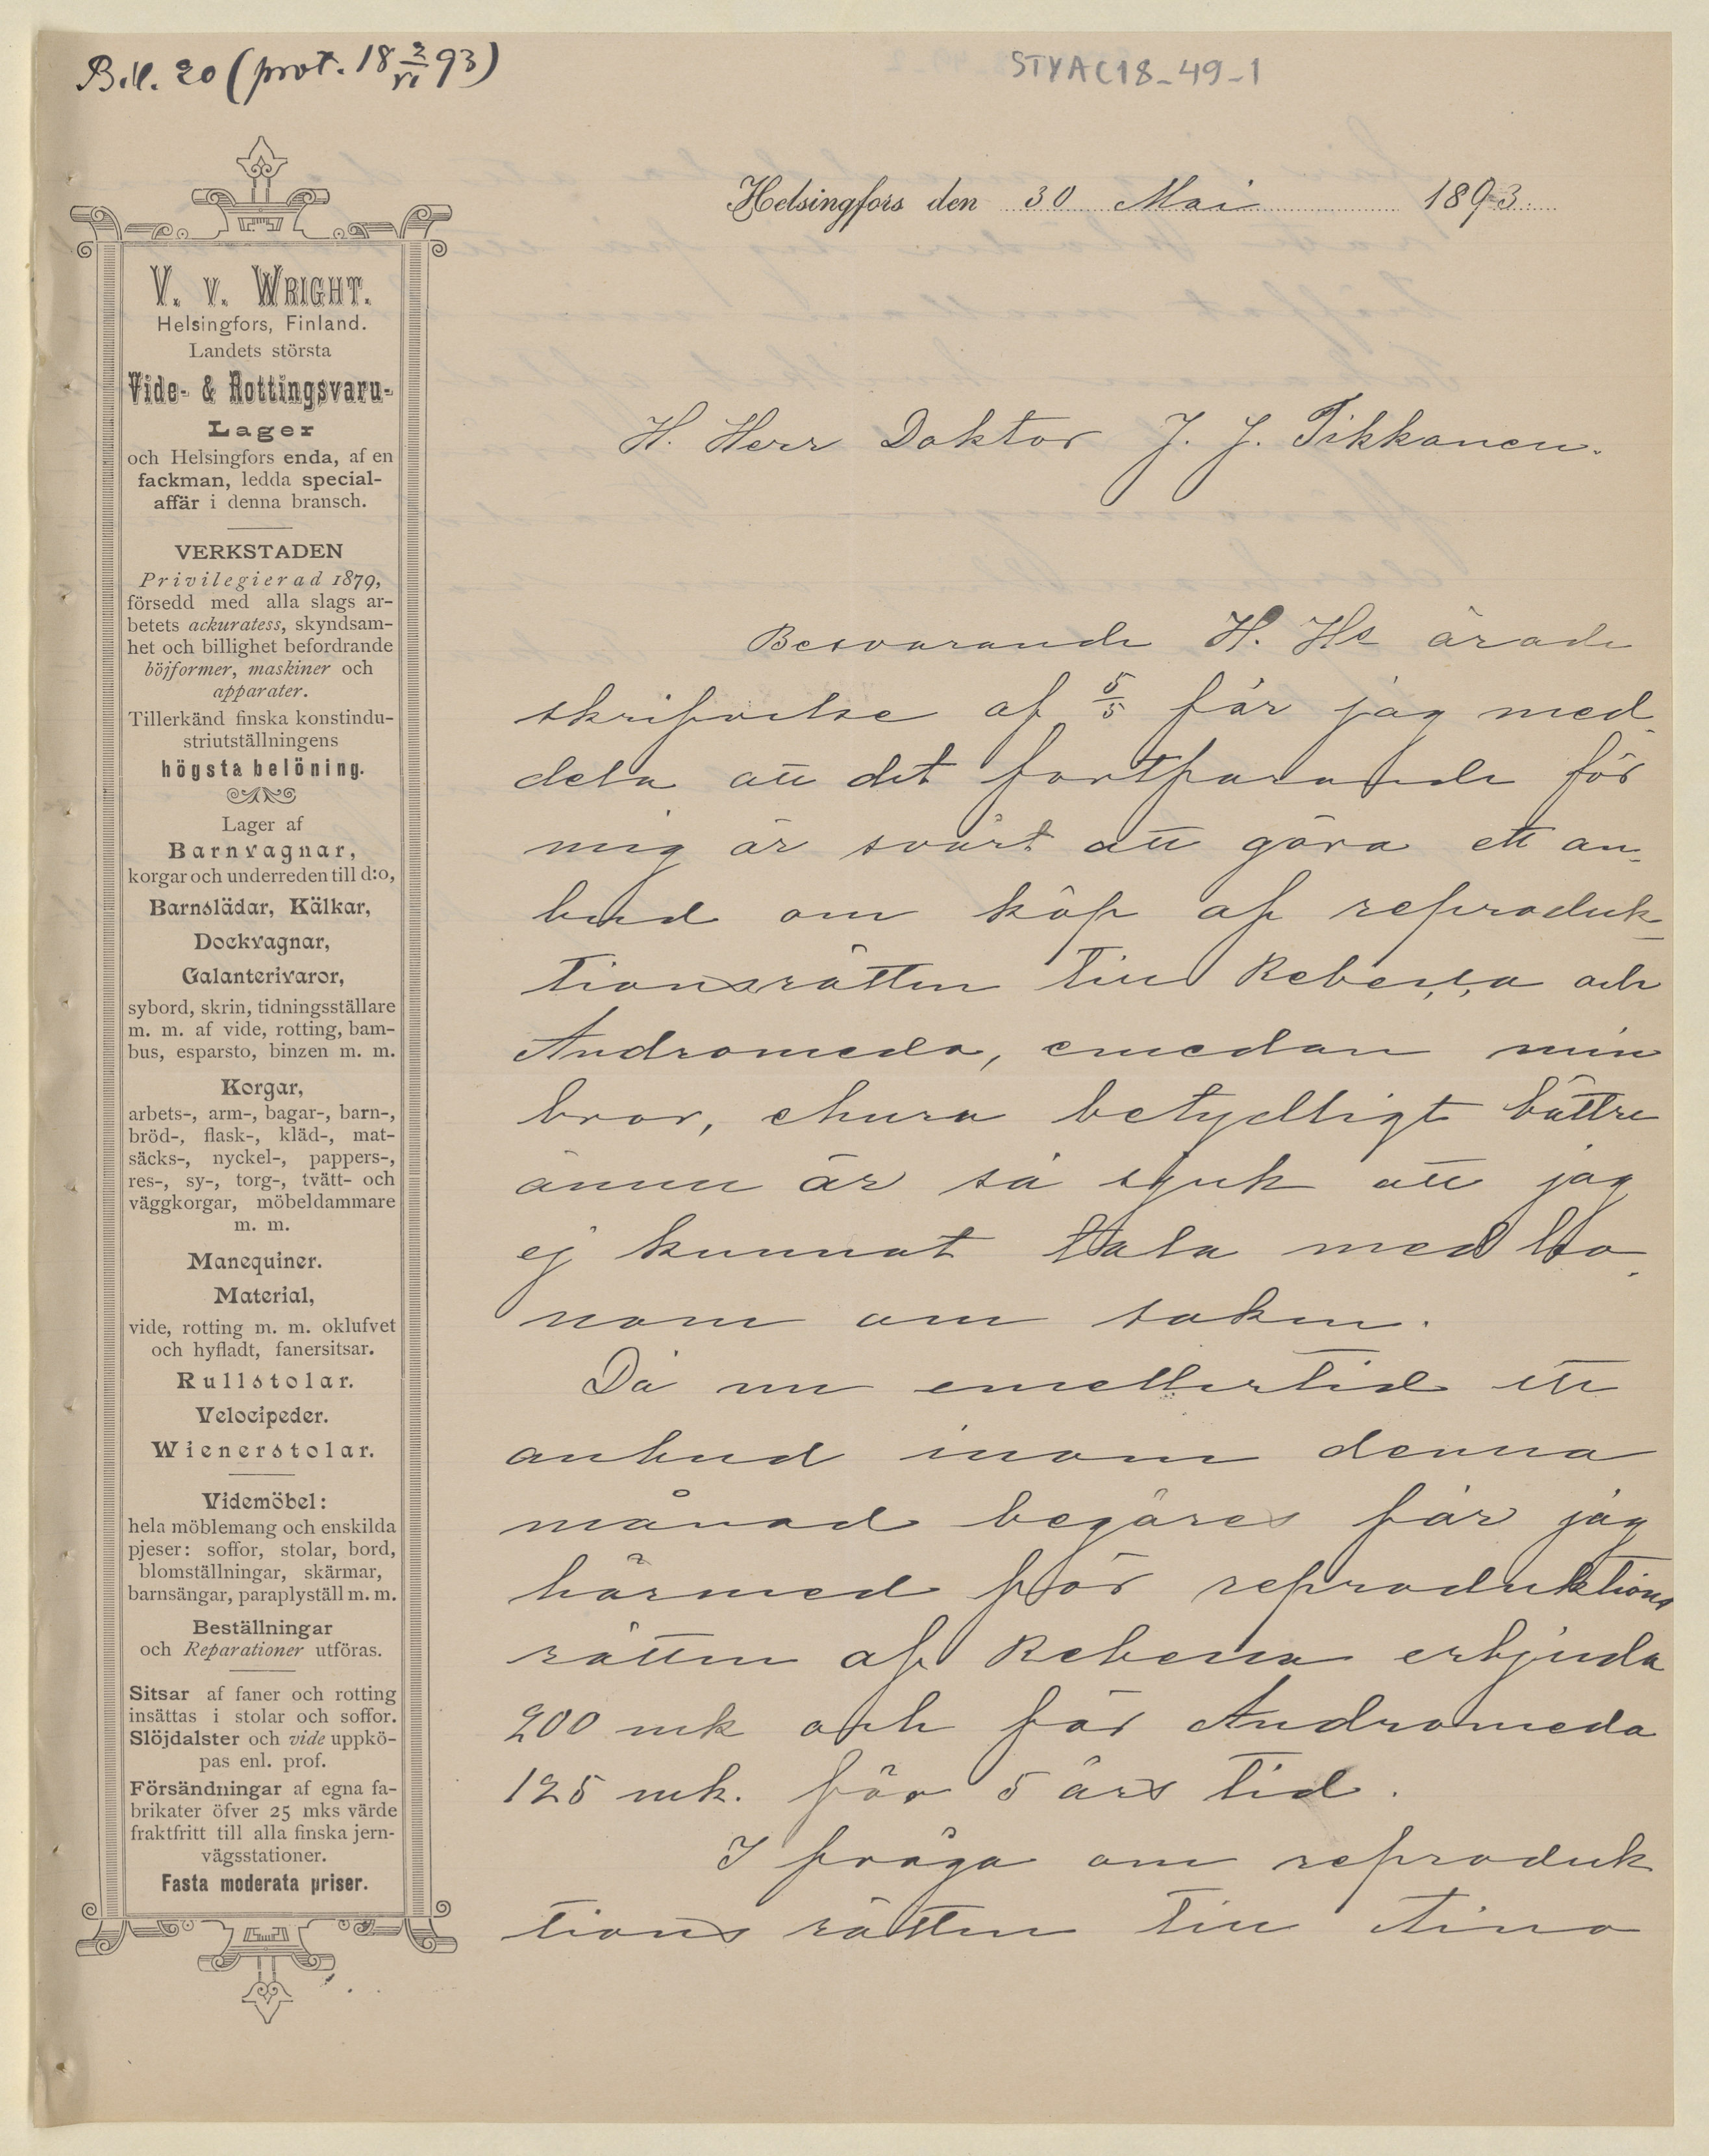 Bil. 20 (prot. 18 2/VI 93)
STYAC18-49-1
Helsingfors den 30 Mai 1893.
V. v. Wright.
Helsingfors, Finland.
Landets största
Vide- & Rottingsvaru-
Lager
och Helsingfors enda, af en
fackman, ledda special-
affär i denna bransch.
VERKSTADEN
Privilegierad 1879,
försedd med alla slags ar-
betets ackuratess, skyndsam-
het och billighet befordrande
böjformer, maskiner och
apparater.
Tillerkänd finska konstindu-
striutställningens
högsta belöning.
Lager af
Barnvagnar,
korgar och underreden till d:o,
Barnslädar, Kälkar,
Dockvagnar,
Galanterivaror,
sybord, skrin, tidningsställare
m. m. af vide, rotting, bam-
bus, esparsto, binzen m. m.
Korgar,
arbets-, arm-, bagar-, barn-,
bröd-, flask-, kläd-, mat-
säcks-, nyckel-, pappers-,
res-, sy-, torg-, tvätt- och
väggkorgar, möbeldammare
m. m.
Manequiner.
Material,
vide, rotting m. m. oklufvet
och hyfladt, fanersitsar.
Rullstolar.
Velocipeder.
Wienerstolar.
Videmöbel:
hela möblemang och enskilda
pjeser: soffor, stolar, bord,
blomställningar, skärmar,
barnsängar, paraplyställ m. m.
Beställningar
och Reparationer utföras.
Sitsar af faner och rotting
insättas i stolar och soffor.
Slöjdalster och vide uppkö-
pas enl. prof.
Försändningar af egna fa-
brikater öfver 25 mks värde
fraktfritt till alla finska jern-
vägsstationer.
Fasta moderata priser.
H. Herr Doktor J. J. Tikkanen.
Besvarande H. Hs ärade
skrifvelse af 5/5 får jag med-
dela att det fortfarande för
mig är svårt att göra ett an-
bud om köp af reproduk-
tionsrätten till Rebecca och
Andromeda, emedan min
bror, ehuru betydligt bättre
ännu är så sjuk att jag
ej kunnat tala med ho-
nom om saken.
Då nu emellertid ett
anbud inom denna
månad begäres får jag
härmed för reproduktions
rätten af Rebecca erbjuda
200 mk och för Andromeda
125 mk. för 5 års tid.
I fråga om reproduk
tions rätten till Aino